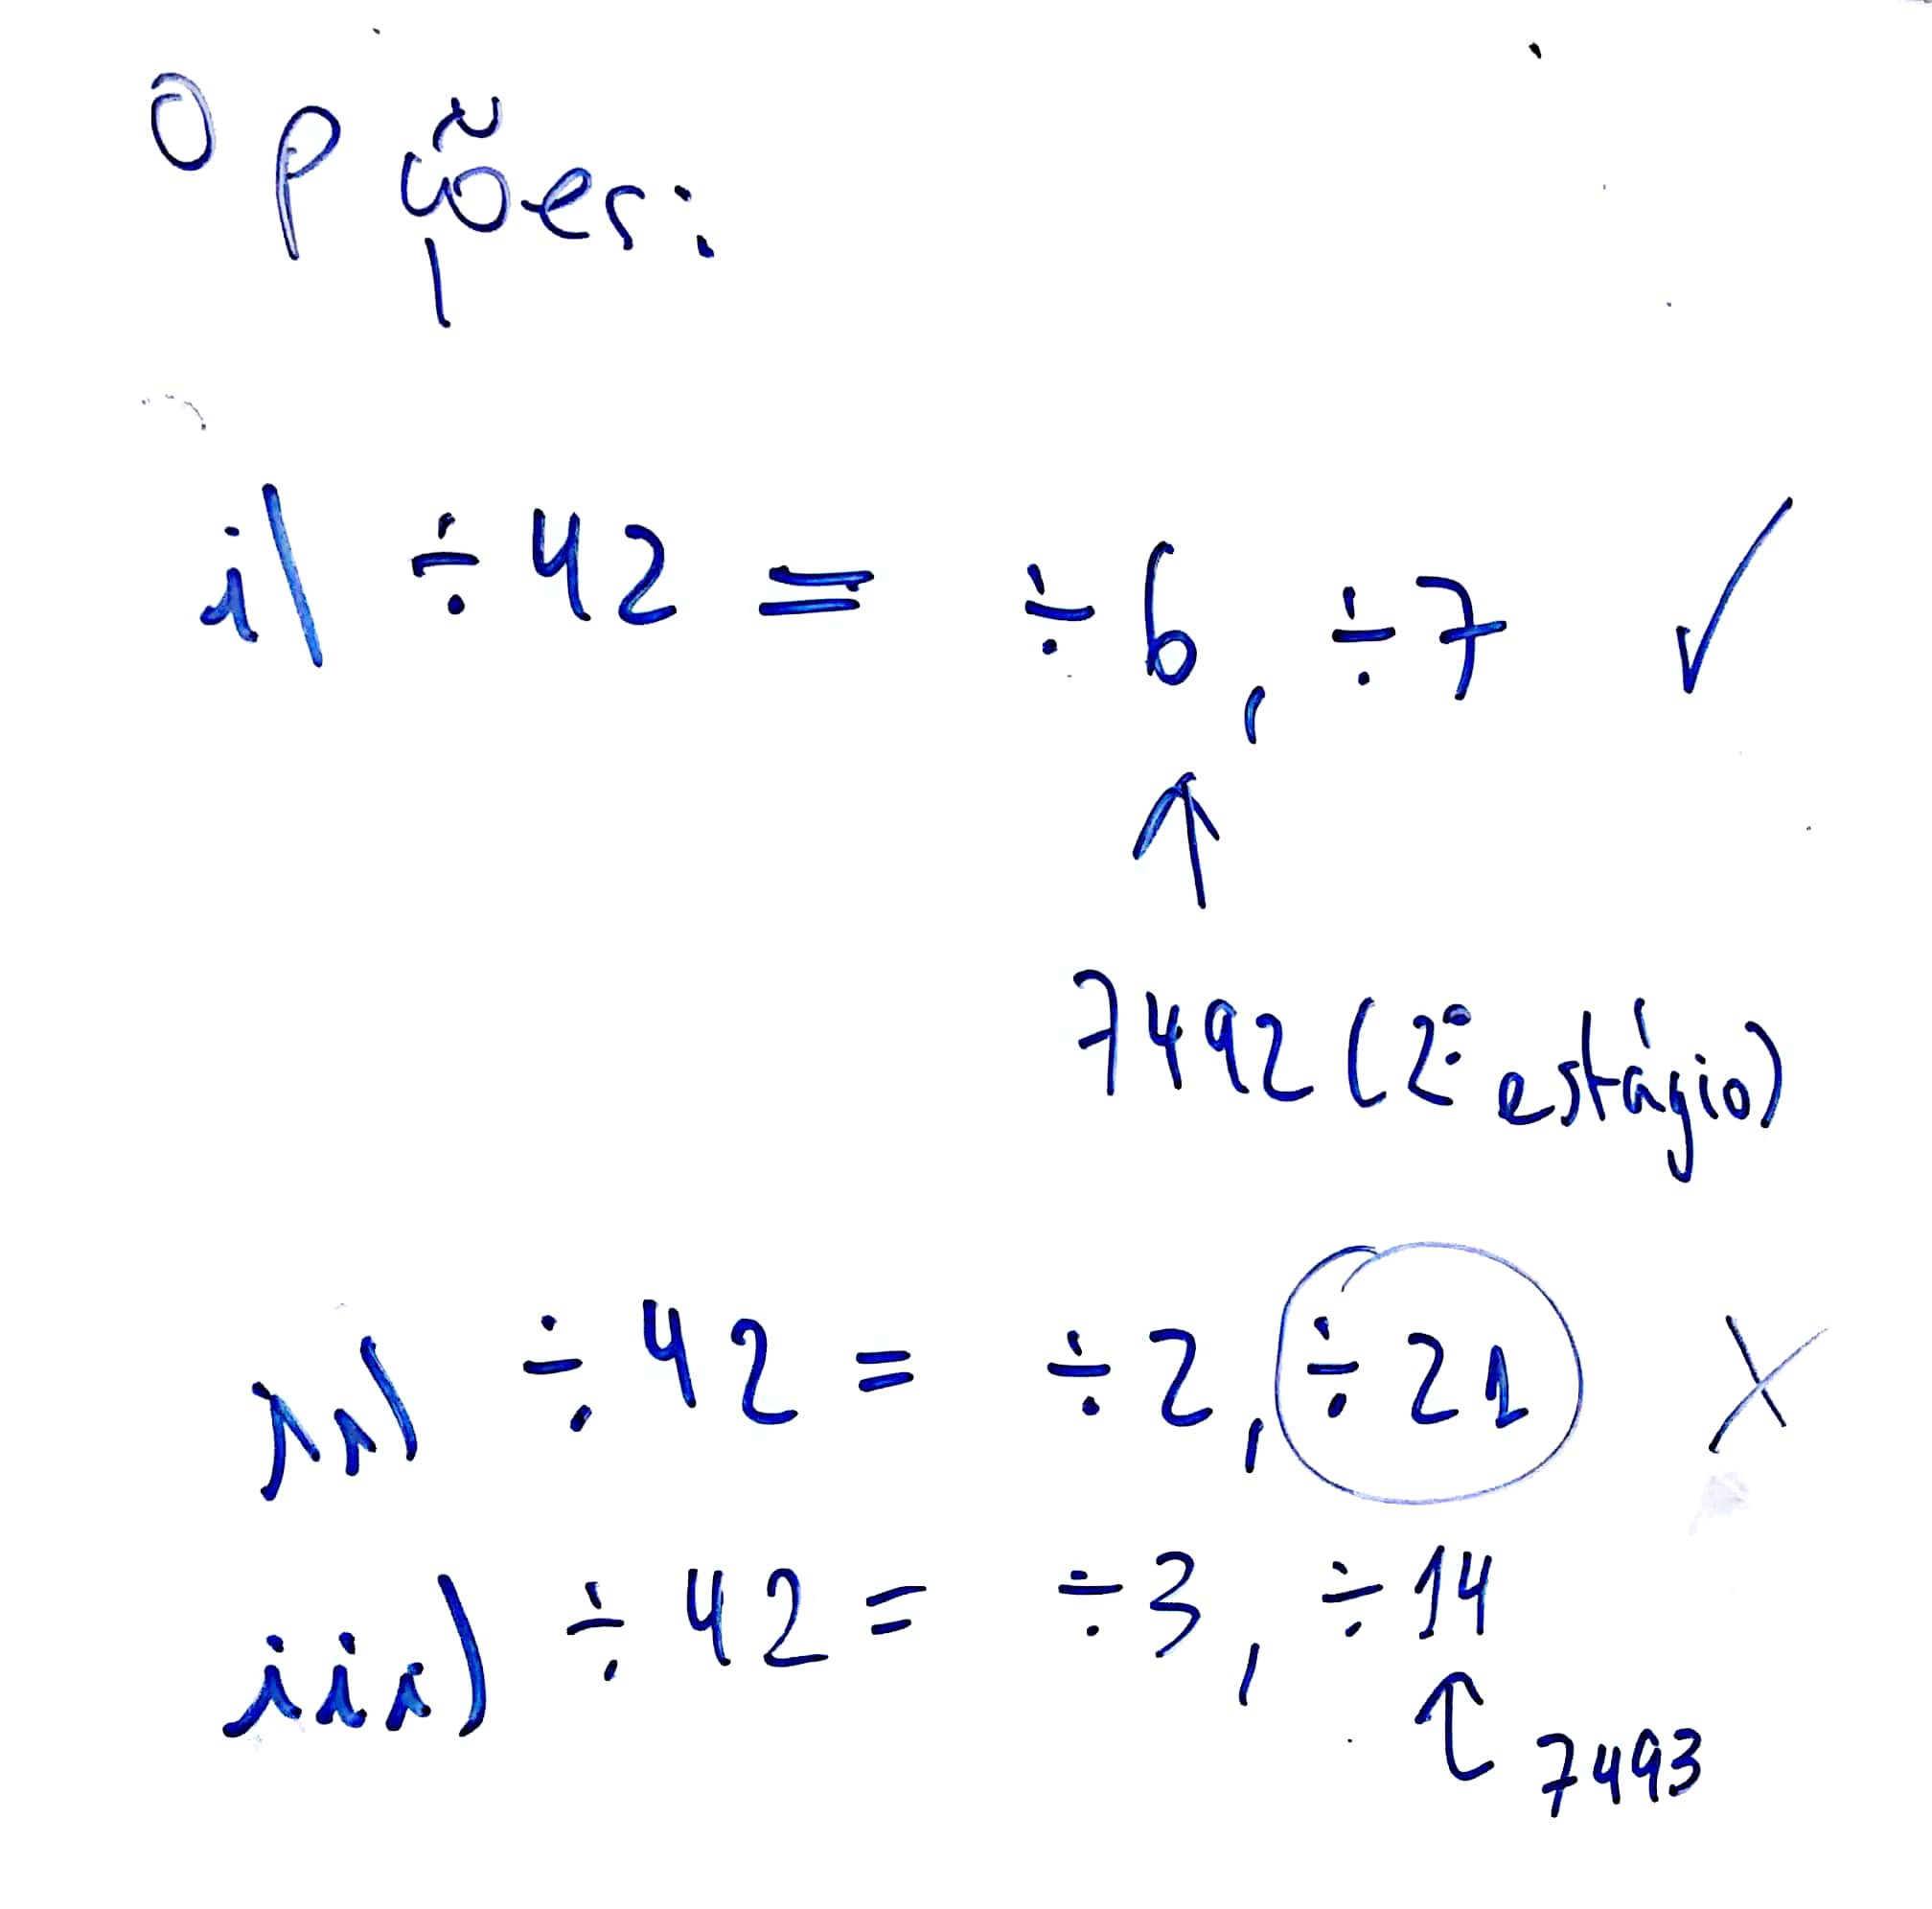 Opções:
i) ÷42 = ÷6, ÷7 ✓
↑
7492 (2º estágio)
ii) ÷42 = ÷2, ÷21 X
iii) ÷42 = ÷3, ÷14
↑ 7493